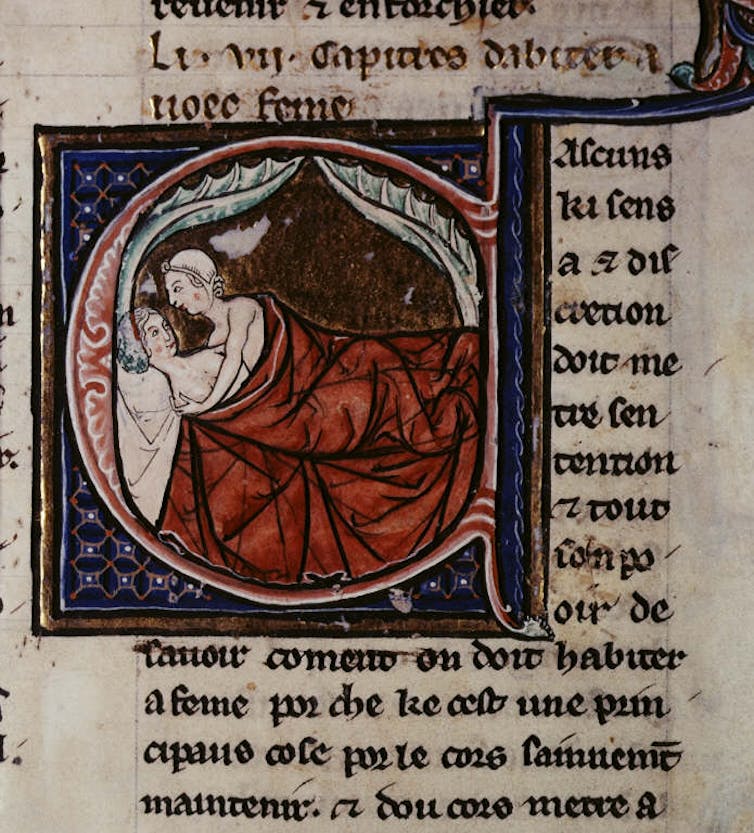 revenir ⁊ enforchier.
Li. vij. Capitres dabiter a
voec feme
Cascuns
ki sens
a ⁊ dis
cretion
doit me
tre sen
tention
⁊ tout
son po
oir de
savoir coment on doit habiter
a feme por che ke cest une prin
cipaus cose por le cors sainnemt̄
maintenir. ⁊ dou cors metre a